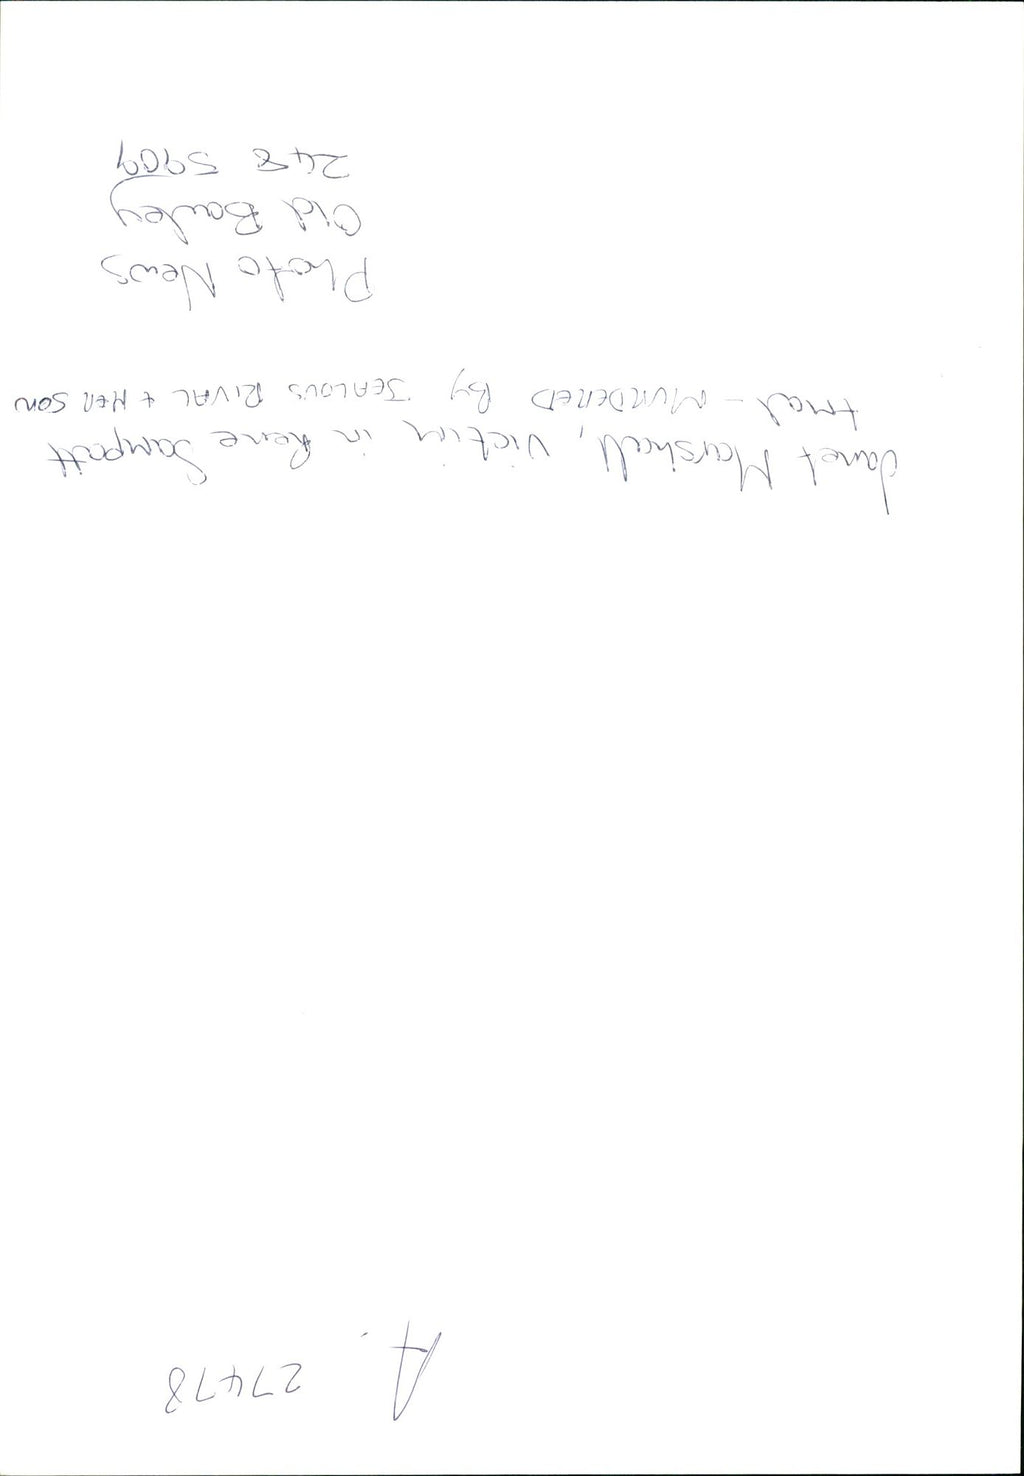 A. 27478
Janet Marshall, victim in Rene Sampatt
trial - MURDERED By JEALOUS RIVAL + HER SON
Photo News
Old Bailey
248 5909